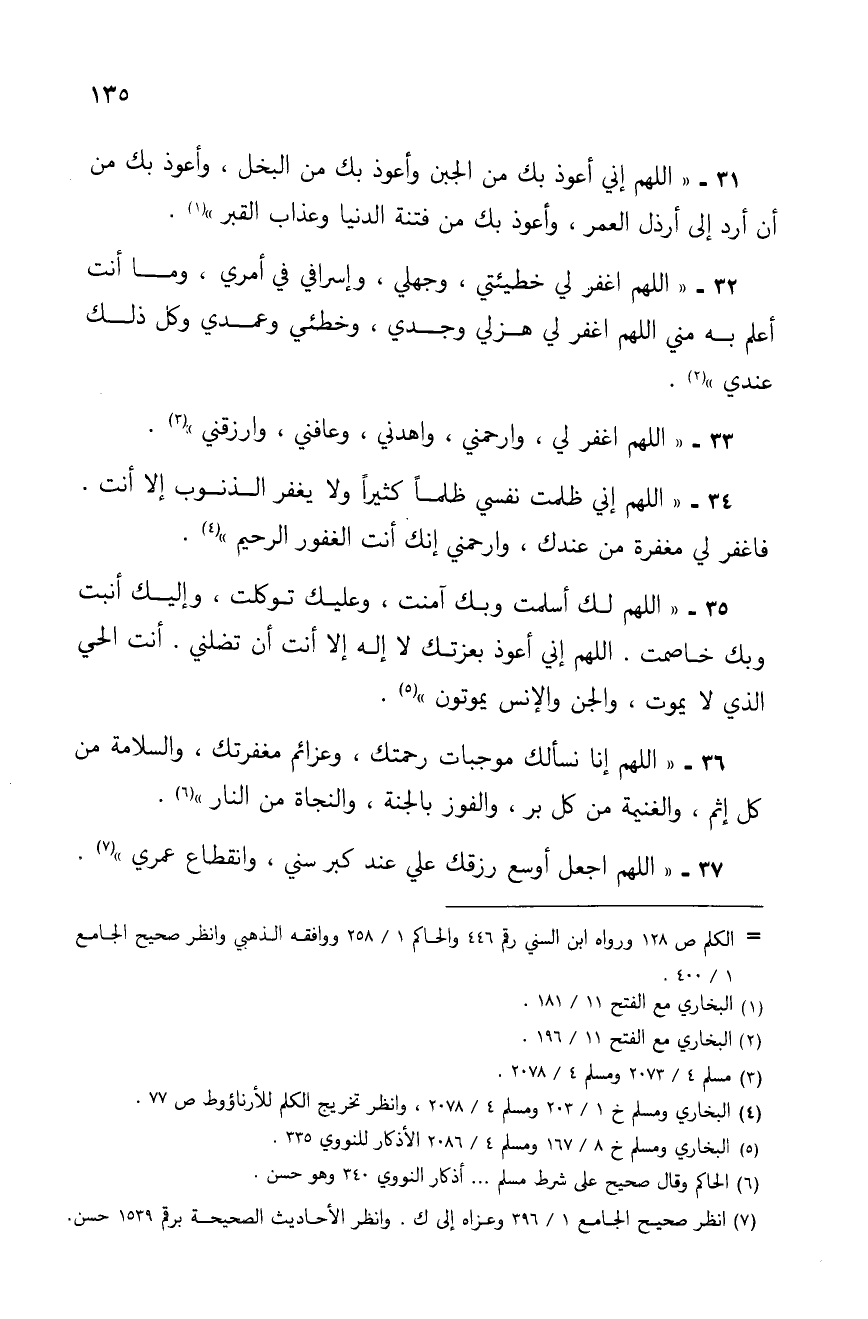 ١٣٥
٣١ ـ « اللهم إني أعوذ بك من الجبن وأعوذ بك من البخل ، وأعوذ بك من
أن أرد إلى أرذل العمر ، وأعوذ بك من فتنة الدنيا وعذاب القبر »(١) .
٣٢ ـ « اللهم اغفر لي خطيئتي ، وجهلي ، وإسرافي في أمري ، ومـــا أنت
أعلم بــه مني اللهم اغفر لي هـزلي وجــدي ، وخطئي وعمــدي وكل ذلــك
عندي »(٢) .
٣٣ ـ « اللهم اغفر لي ، وارحمني ، واهدني ، وعافني ، وارزقني »(٣) .
٣٤ ـ « اللهم إني ظلمت نفسي ظلمـاً كثيراً ولا يغفر الـذنـوب إلا أنت .
فاغفر لي مغفرة من عندك ، وارحمني إنك أنت الغفور الرحيم »(٤) .
٣٥ ـ « اللهم لـك أسلمت وبـك آمنت ، وعليـك تـوكلت ، وإليـك أنبت
وبك خـاصمت . اللهم إني أعوذ بعزتـك لا إلـه إلا أنت أن تضلني . أنت الحي
الذي لا يموت ، والجن والإنس يموتون »(٥) .
٣٦ ـ « اللهم إنا نسألك موجبات رحمتك ، وعزائم مغفرتك ، والسلامة من
كل إثم ، والغنيمة من كل بر ، والفوز بالجنة ، والنجاة من النار »(٦) .
٣٧ ـ « اللهم اجعل أوسع رزقك علي عند كبر سني ، وانقطاع عمري »(٧) .
= الكلم ص ١٢٨ ورواه ابن السني رقم ٤٤٦ والحـاكم ١ / ٢٥٨ ووافقـه الـذهبي وانظر صحيح الجـامـع
١ / ٤٠٠ .
(١) البخاري مع الفتح ١١ / ١٨١ .
(٢) البخاري مع الفتح ١١ / ١٩٦ .
(٣) مسلم ٤ / ٢٠٧٣ ومسلم ٤ / ٢٠٧٨ .
(٤) البخاري ومسلم خ ١ / ٢٠٣ ومسلم ٤ / ٢٠٧٨ ، وانظر تخريج الكلم للأرناؤوط ص ٧٧ .
(٥) البخاري ومسلم خ ٨ / ١٦٧ ومسلم ٤ / ٢٠٨٦ الأذكار للنووي ٣٣٥ .
(٦) الحاكم وقال صحيح على شرط مسلم ... أذكار النووي ٣٤٠ وهو حسن .
(٧) انظر صحيـح الجـامـع ١ / ٣٩٦ وعـزاه إلى ك . وانظر الأحـاديث الصحيحـة برقم ١٥٣٩ حسن.